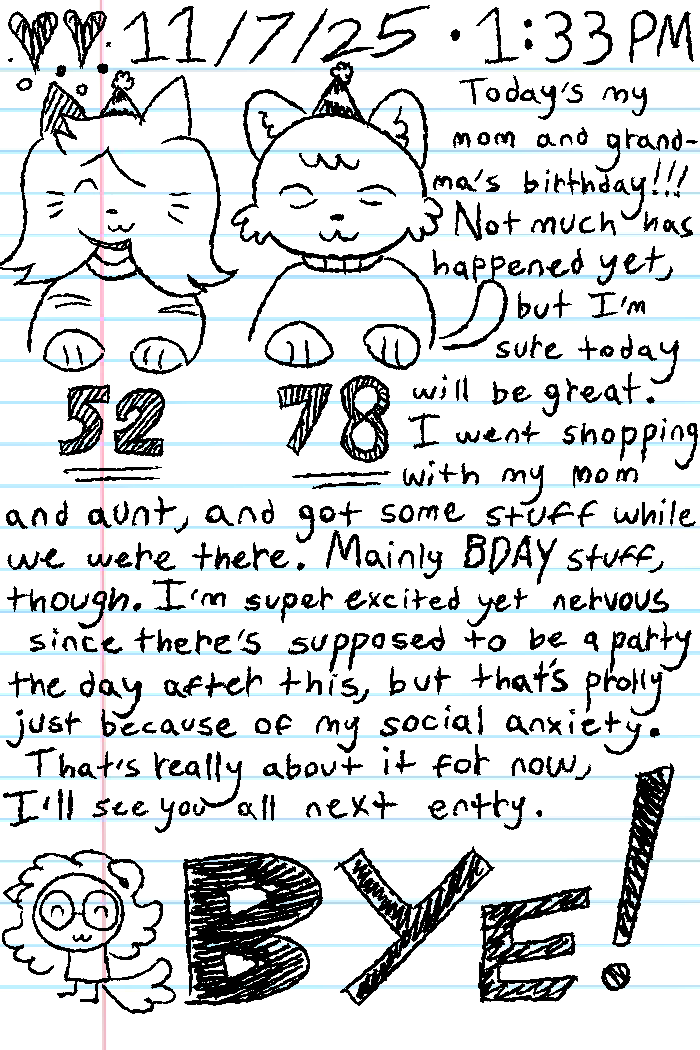 11/7/25 · 1:33 PM
Today's my
mom and grand-
ma's birthday!!!
Not much has
happened yet,
but I'm
sure today
will be great.
I went shopping
with my mom
52
78
and aunt, and got some stuff while
we were there. Mainly BDAY stuff,
though. I'm super excited yet nervous
since there's supposed to be a party
the day after this, but that's prolly
just because of my social anxiety.
That's really about it for now,
I'll see you all next entry.
BYE!